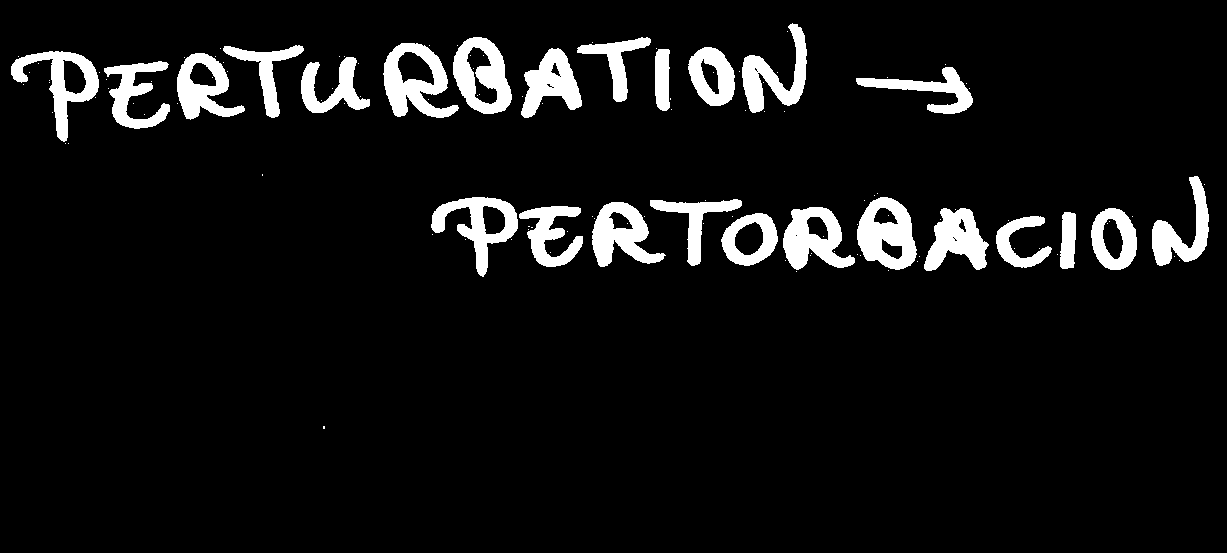 PERTURBATION →
PERTORBACION